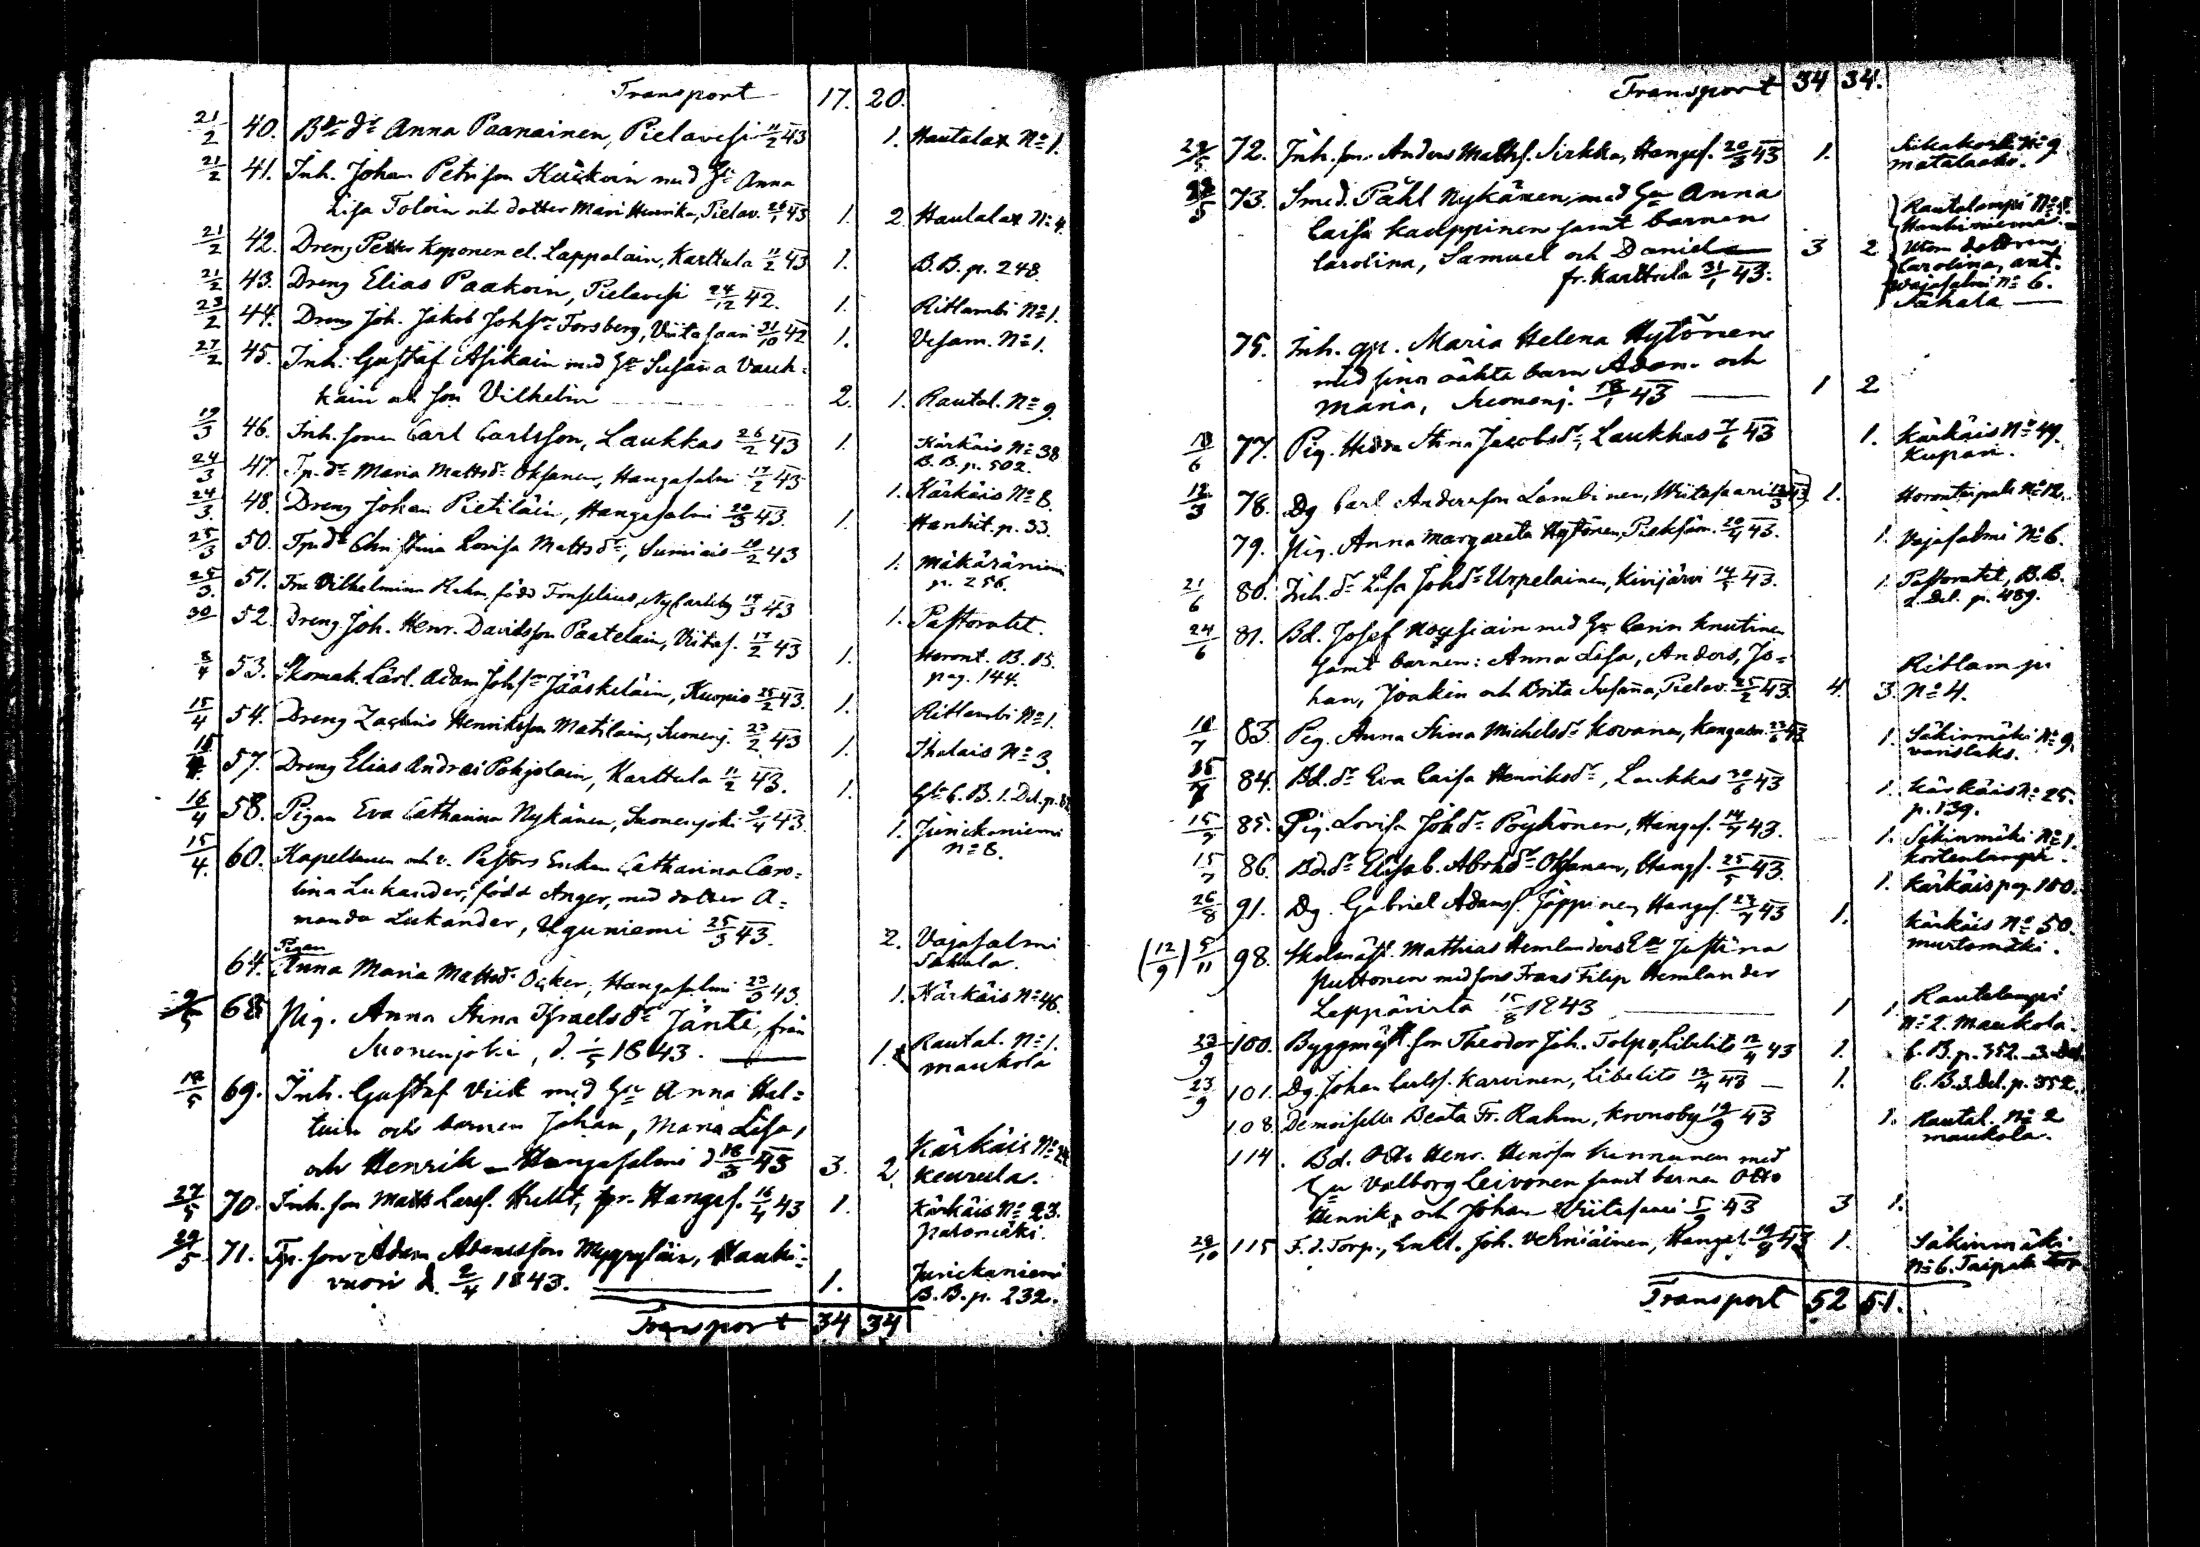 Transport 17. 20.
21/2 40. Bdr dr Anna Paanainen, Pielavesi 11/2 43 1. Hautalax No 1.
21/2 41. Inh. Johan Petrisson Kuikoin med Hu Anna
Lisa Toloin och dotter Maria Henrika, Pielav. 26/1 43 1. 2 Hautalax No 4.
21/2 42. Dreng Petter Koponen el. Lappalain, Karttula 11/2 43 1. B.B. p. 248.
21/2 43. Dreng Elias Paakoin, Pielavesi 24/12 42. 1. Ritlambi No 1.
23/2 44. Dreng Joh. Jakob Johsson Forsberg, Viitasaari 31/10 42 1. Vesam. No 1.
27/2 45. Inh. Gustaf Asikain med Hu Susanna Vauh-
kain och son Vilhelm 2. 1. Rautal. No 9.
19/3 46. Inh. sonen Carl Carlsson, Laukkas 26/2 43 1. Kärkäis No 38 B.B. p. 502.
24/3 47. Tp. dr Maria Mattsdr Oksanen, Hangasalmi 17/2 43 1. Kärkäis No 8.
24/3 48. Dreng Johan Pietiläin, Hangasalmi 20/3 43. 1. Hankit. p. 33.
25/3 50. Tp. dr Christina Lovisa Mattsdr, Sumiais 10/2 43 1. Mäkäräniemi p. 256.
25/3 51. Fru Vilhelmina Rahm, född Forselius, Ny Carleby 14/3 43 1. Pastoratet.
30 52. Dreng Joh. Henr. Davidsson Paatelain, Viitas. 17/2 43 1. Horont. B.B. pag. 144.
8/4 53. Skomak. Lärl. Adam Johsson Jääskeläin, Kuopio 25/2 43. 1. Ritlambi No 1.
15/4 54. Dreng Zachris Henriksson Matilain, Suonenj. 23/2 43 1. Ihalais No 3.
15/4 57. Dreng Elias Andrei Pohjolain, Karttula 11/2 43. 1. C.B. 1. Del. p.
16/4 58. Pigan Eva Catharina Nykänen, Suonenjoki 9/4 43. 1. Jurickaniemi No 8.
15/4 60. Kapellanen och v. Pastors Enkan Catharina Caro-
lina Lukander, född Anger, med dotter A-
manda Lukander, Uguniemi 25/3 43. 2. Vajasalmi Sahala.
64. Pigan Anna Maria Mattsdr Oiker, Hangasalmi 23/3 43. 1. Kärkäis No 46.
68 Pig. Anna Stina Israelsdr Jänti, från
Suonenjoki, d. 1/5 1843. 1. Rautal. No 1. maukola
18/5 69. Inh. Gustaf Viik med Hu Anna Hal-
tuin och barnen Johan, Maria Lisa,
och Henrik – Hangasalmi d 18/3 43 3. 2. Kärkäis No 24 Keurula.
27/5 70. Inh. son Matts Larss. Hult, fr. Hangas. 16/4 43 1. Kärkäis No 23. Palomäki.
29/5 71. Tp. son Adam Adamsson Myyryläin, Hauki-
vuori d. 2/4 1843. 1. Jurickaniemi B.B. p. 232.
Transport 34 34
Transport 34 34.
29/5 72. Inh. son Anders Mattss. Sirkka, Hangas. 20/3 43 1. Sikakoski No 9 matalaaho.
29/5 73. Smed. Påhl Nykänen, med Hu Anna
Caisa Kauppinen samt barnen
Carolina, Samuel och Daniel 3 2
fr. Karttula 31/1 43.
Rautalampi No
Hankiniemi
Utom dottren
Carolina, ant.
Vajasalmi No 6.
Sahala
75. Inh. qv. Maria Helena Hytönen
med sina oäkta barn Adam och
Maria, Suonenj. 18/1 43 1 2
18/6 77. Pig. Hedda Stina Jacobsdr, Laukkas 7/6 43 1. Kärkäis No 49. Kupari.
12/3 78. Dg Carl Andersson Lambinen, Viitasaari 12/3 43 1. Horontaipale No 12.
79. Pig. Anna Margareta Hytönen, Pieksäm. 20/4 43. 1. Vajasalmi No 6.
21/6 80. Inh. dr Lisa Johdr Urpelainen, Kivijärvi 14/5 43. 1. Pastoratet, B.B. 2. Del. p. 489.
24/6 81. Bd. Josef Noysiain med Hu Carin Knutinen
samt barnen: Anna Lisa, Anders, Jo-
han, Joakim och Brita Susanna, Pielav. 25/2 43. 4. 3. Ritlampi No 4.
10/7 83. Pig. Anna Stina Michelsdr Kovanen, Kangasn. 23/6 43 1. Säkinmäki No 9. varislaks.
15/7 84. Bd. dr Eva Caisa Henriksdr, Laukkas 20/6 43 1. Kärkäis No 25. p. 139.
15/7 85. Pig. Lovisa Johdr Pöyhönen, Hangas. 14/7 43. 1. Säkinmäki No 1. Kortenlampi.
15/7 86. Bd. dr Elisab. Abrhdr Oksanen, Hangs. 25/5 43. 1. Kärkäis pag. 150.
26/8 91. Dg. Gabriel Adamss. Jäppinen, Hangas. 23/7 43 1. Kärkäis No 50. murtomäki.
(12/9) 5/11 98. Skolmäst. Mathias Hemlanders Ea Justina
Puttonen med son Frans Filip Hemlander
Leppävirta 15/8 1843 1 1 Rautalampi No 2. Maukola.
23/9 100. Byggmäst. son Theodor Joh. Tolpo, Libelits 12/4 43 1. C.B. p. 352 3 Del.
23/9 101. Dg. Johan Carlss. Karvinen, Libelits 13/4 43 – 1. C.B. 3. Del. p. 352.
108. Demoiselle Beata Fr. Rahm, Kronoby 19/9 43 1. Rautal. No 2 maukola.
114. Bd. Otto Henr. Henrsson Kinnunen med
Hu Valborg Leivonen samt barnen Otto
Henrik, och Johan Viitasaari 5/9 43 3 1.
29/10 115 F. d. Torp., Enkl. Joh. Vehniäinen, Hangas. 19/8 43 1. Säkinmäki No 6. Taipale
Transport 52 51.